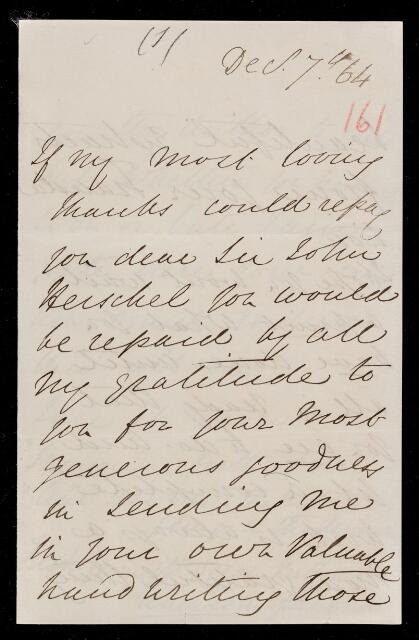 (1)
Dec. 7th. 64
161
If my most loving
thanks could repay
you dear Sir John
Herschel you would
be repaid by all
my gratitude to
you for your most
generous goodness
in sending me
in your own valuable
handwriting those